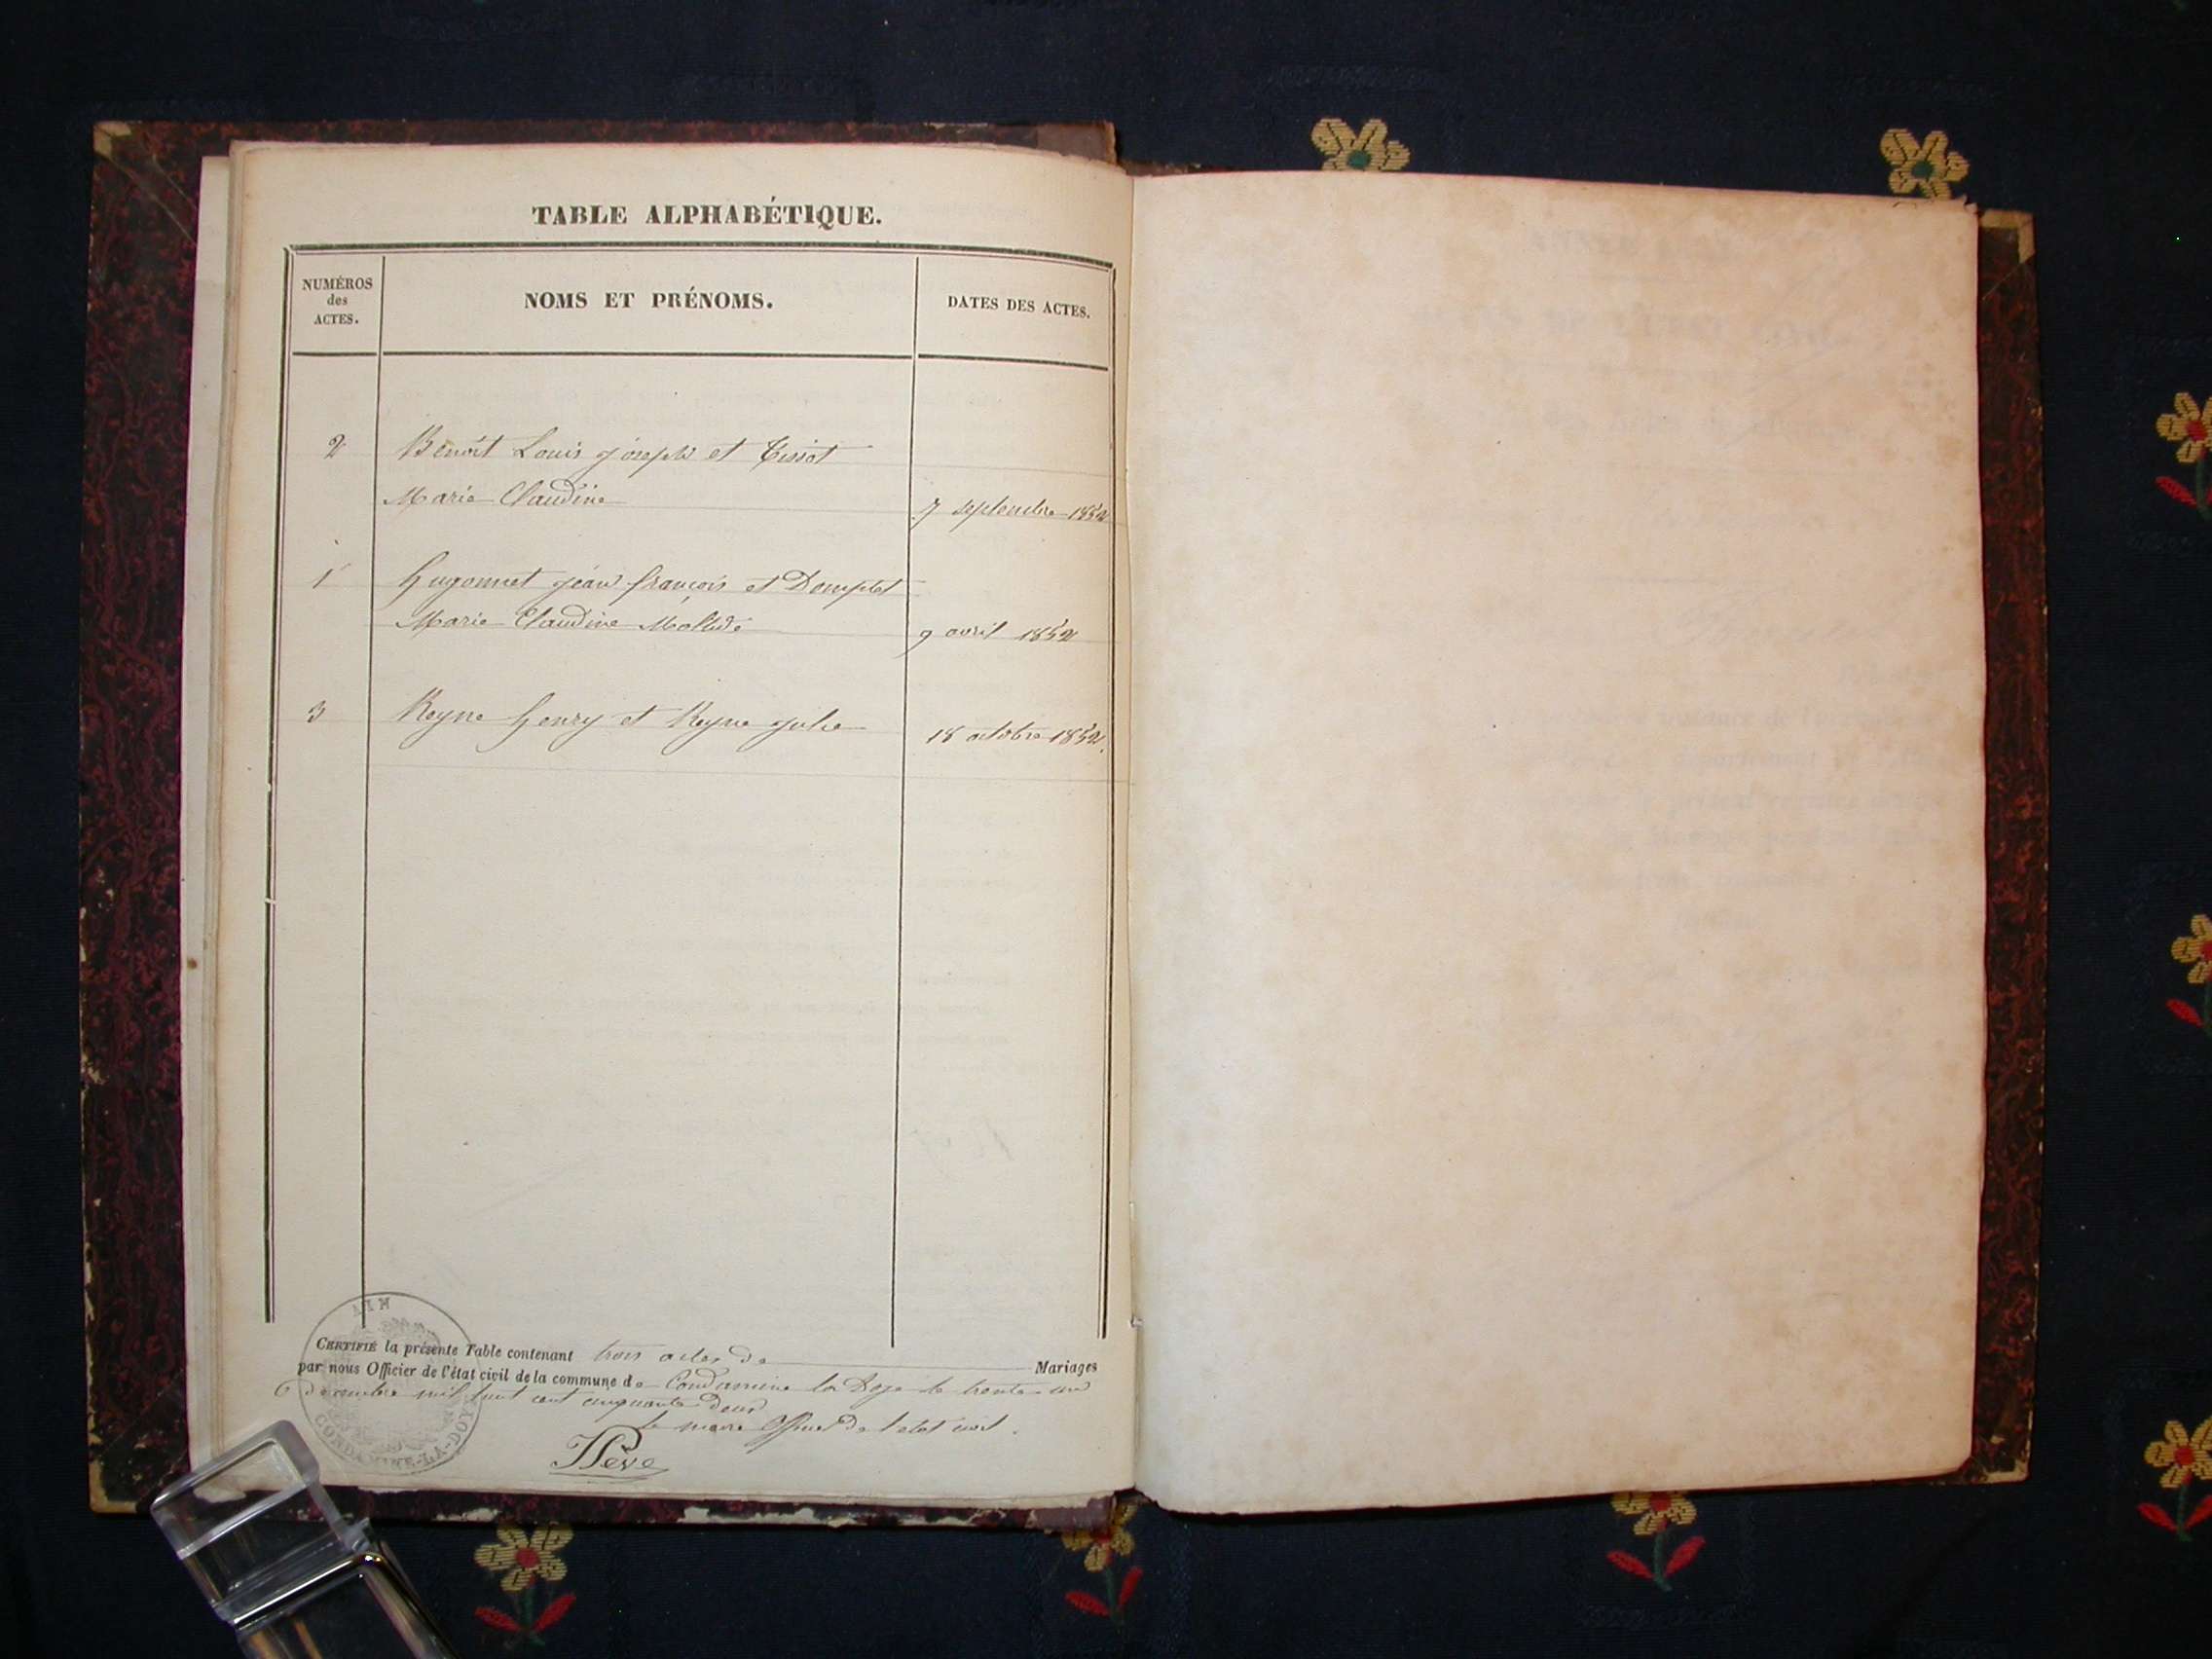 TABLE ALPHABÉTIQUE.
NUMÉROS des ACTES.
NOMS ET PRÉNOMS.
DATES DES ACTES.
2 Benoit Louis joseph et Tissot
Marie Claudine 7 septembre 1852
1 Hugonnet jean françois et Domplet
Marie Claudine 9 avril 1852
3 Reyne henry et Reyne julie 18 octobre 1852.
CERTIFIÉ la présente Table contenant trois actes de Mariages
par nous Officier de l'état civil de la commune de Condamine la Doye le trente un
décembre mil huit cent cinquante deux
le maire Officier de l'etat civil.
Pève
CONDAMINE-LA-DOYE